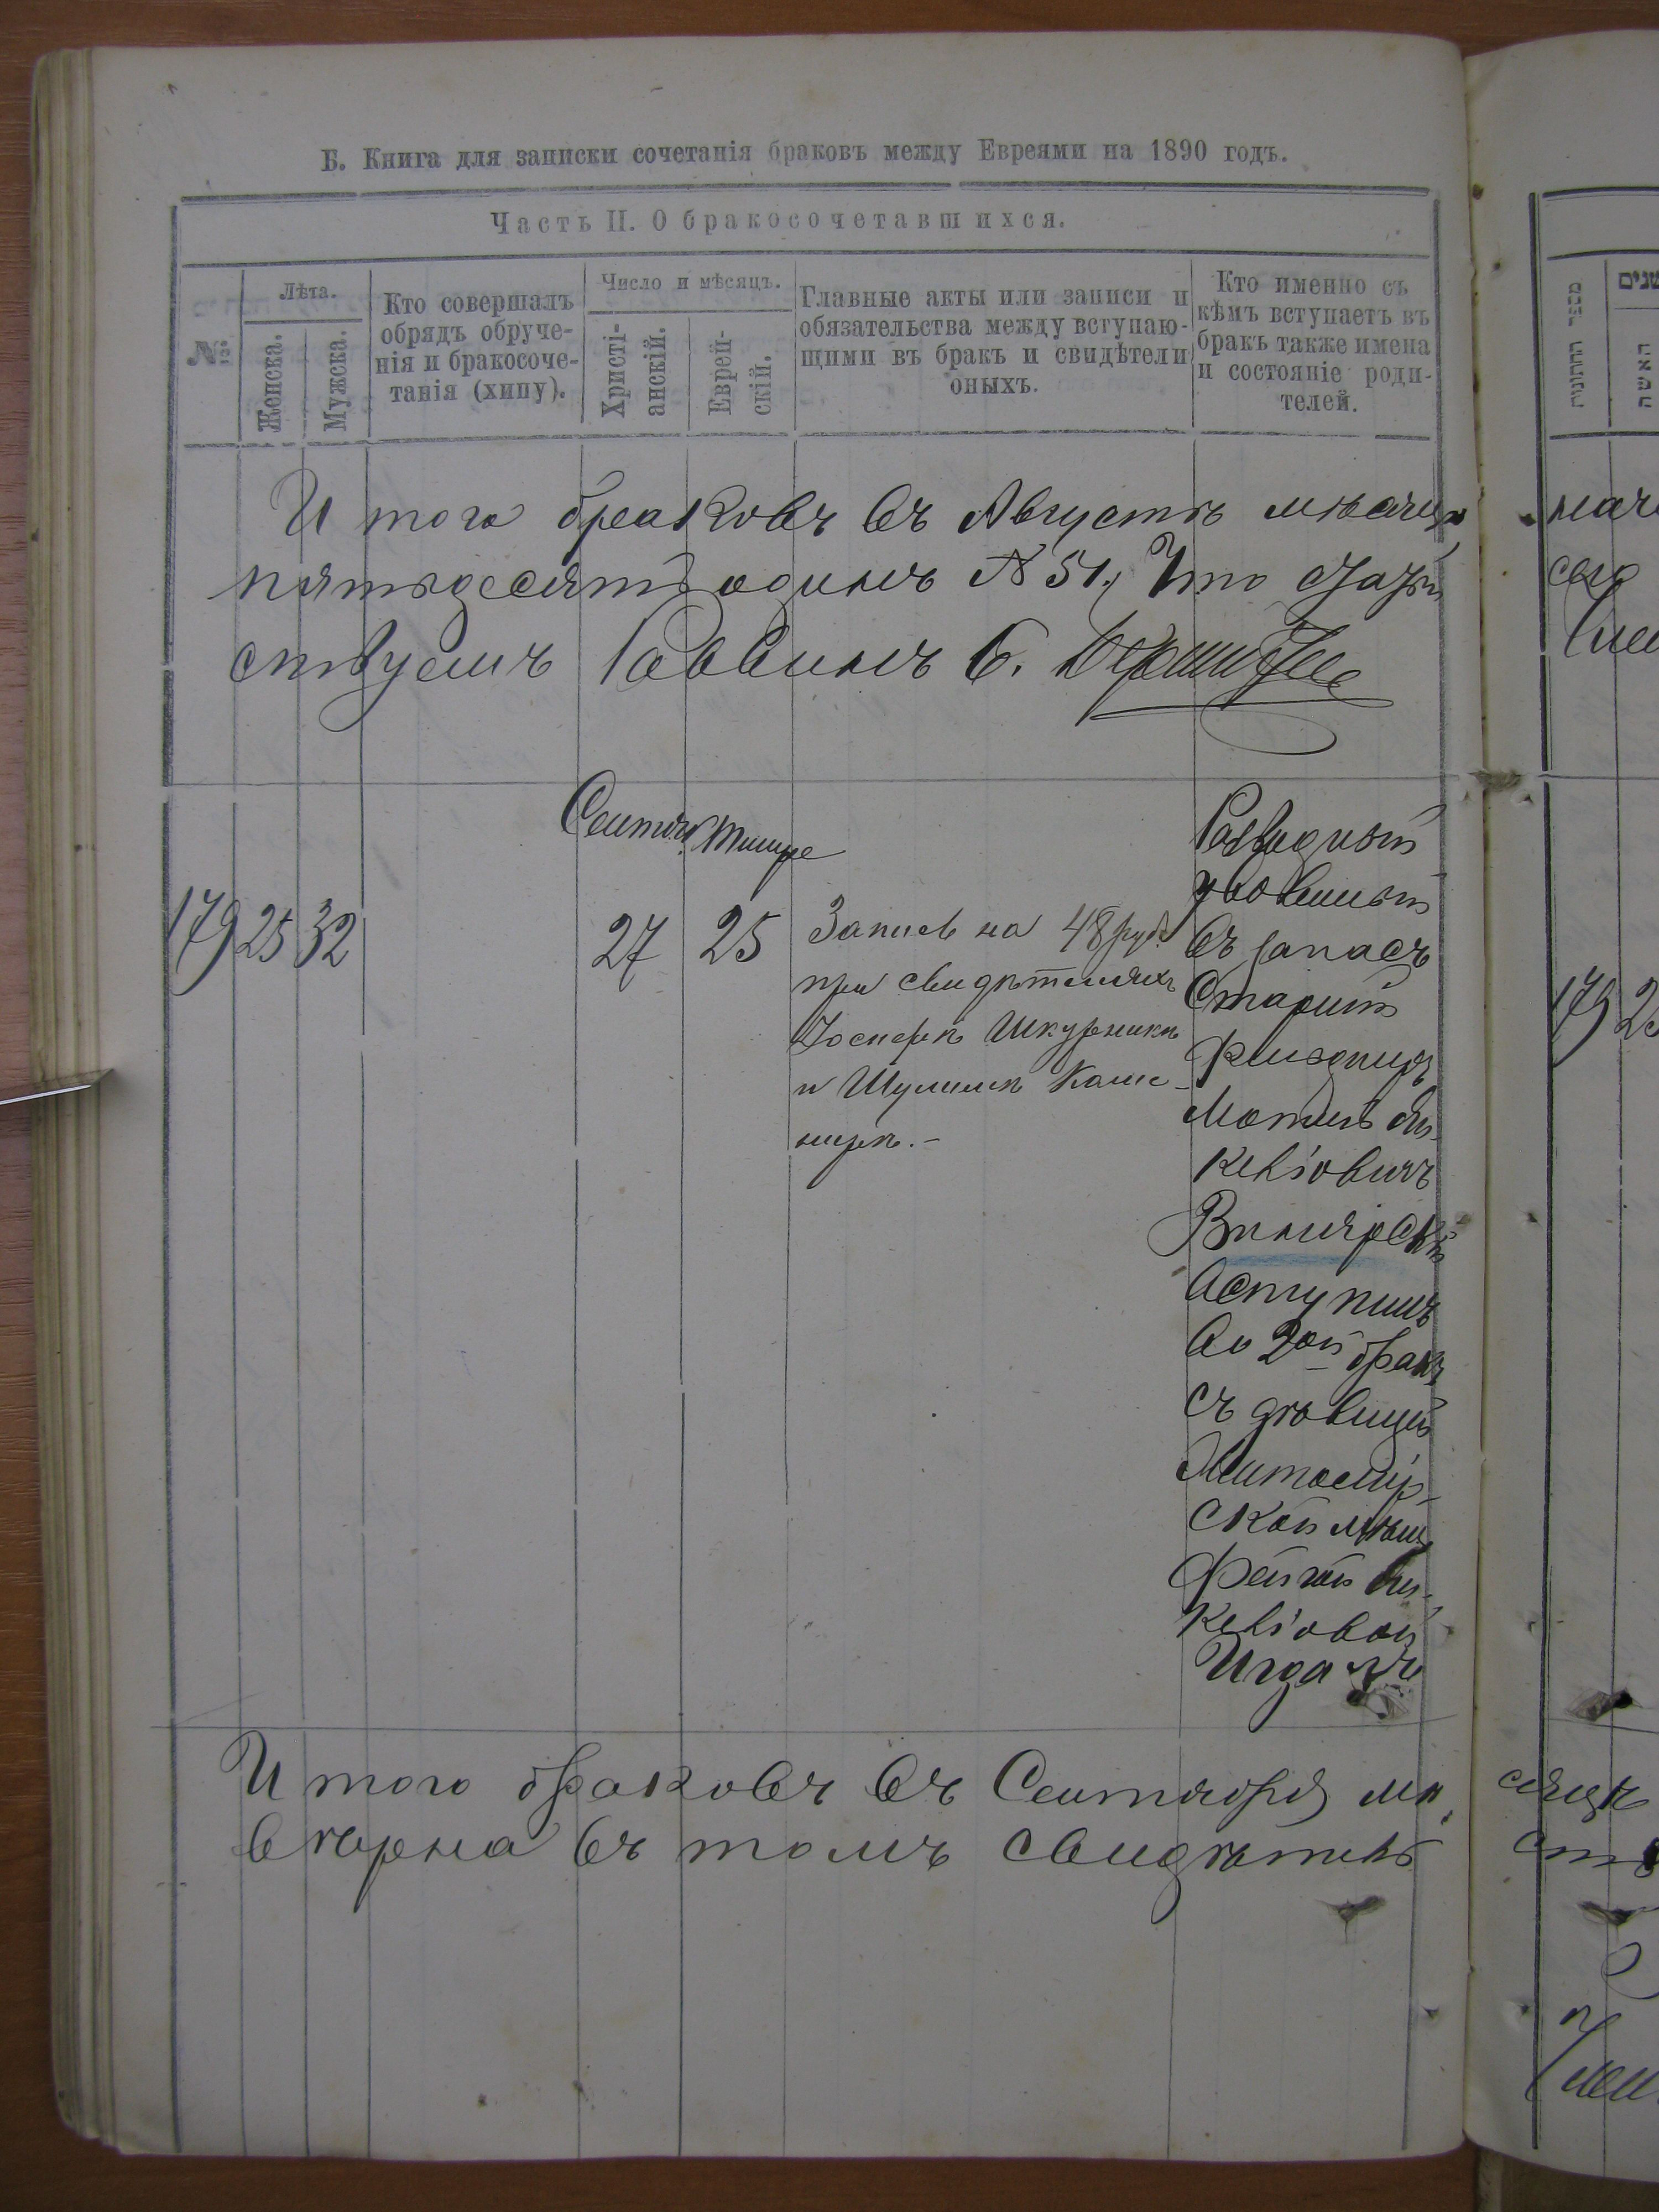 Б. Книга для записки сочетанія браковъ между Евреями на 1890 годъ.
Часть II. О бракосочетавшихся.
№
Лѣта.
Женска.
Мужска.
Кто совершалъ
обрядъ обруче-
нія и бракосоче-
танія (хипу).
Число и мѣсяцъ.
Христі-
анскій.
Еврей-
скій.
Главные акты или записи и
обязательства между вступаю-
щими въ бракъ и свидѣтели
оныхъ.
Кто именно съ
кѣмъ вступаетъ въ
бракъ также имена
и состояніе роди-
телей.
И того браковъ въ Августѣ мѣсяцѣ
пятьдесятъ одинъ № 51, Что
ствуемъ Раввинъ Б.
Сентяб. Тишре
179 25 32
27 25
Запись на 48 руб.
при свидѣтеляхъ
Іосперѣ Шкурникѣ
и Шулимѣ Каме-
нирѣ.-
Разводный
уволеный
въ запасъ
Старшій
Мотель
кевіовичъ
Винярскій
вступилъ
во 2ой бракъ
съ дѣвицей
Житомір-
ской мѣщ
Фейгой
кевіовой
И того браковъ въ Сентября мѣ
вѣрна въ томъ свидѣтель
שנים
האשה
179